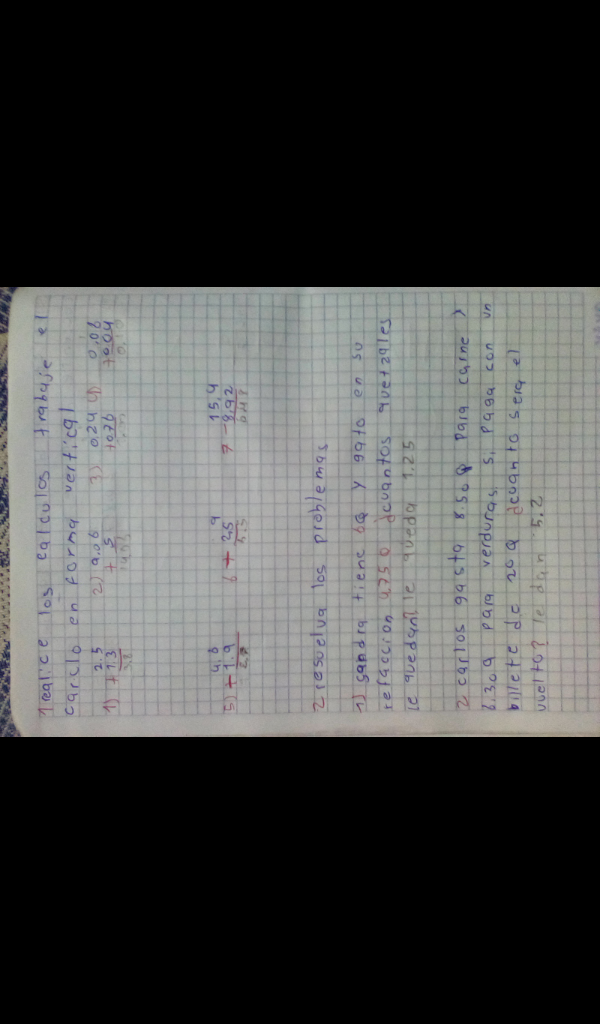 1 realice los calculos trabaje el
carclo en forma vertical
1) 2.5 2) 9.06 3) 0.24 4) 0.06
+ 1.3 + 5 + 0.76 + 0.04
3.8
5) 4.8 6 9 7 15.4
+ 1.9 + 2.5 - 8.92
6.48
2 resuelva los problemas
1) sandra tiene 6Q y gato en su
refaccion 4.75Q ¿cuantos quetzales
le quedan? le queda 1.25
2 carlos gasta 8.50Q para carne y
6.30Q para verduras. si paga con un
billete de 20Q ¿cuanto sera el
vuelto? le dan 5.2